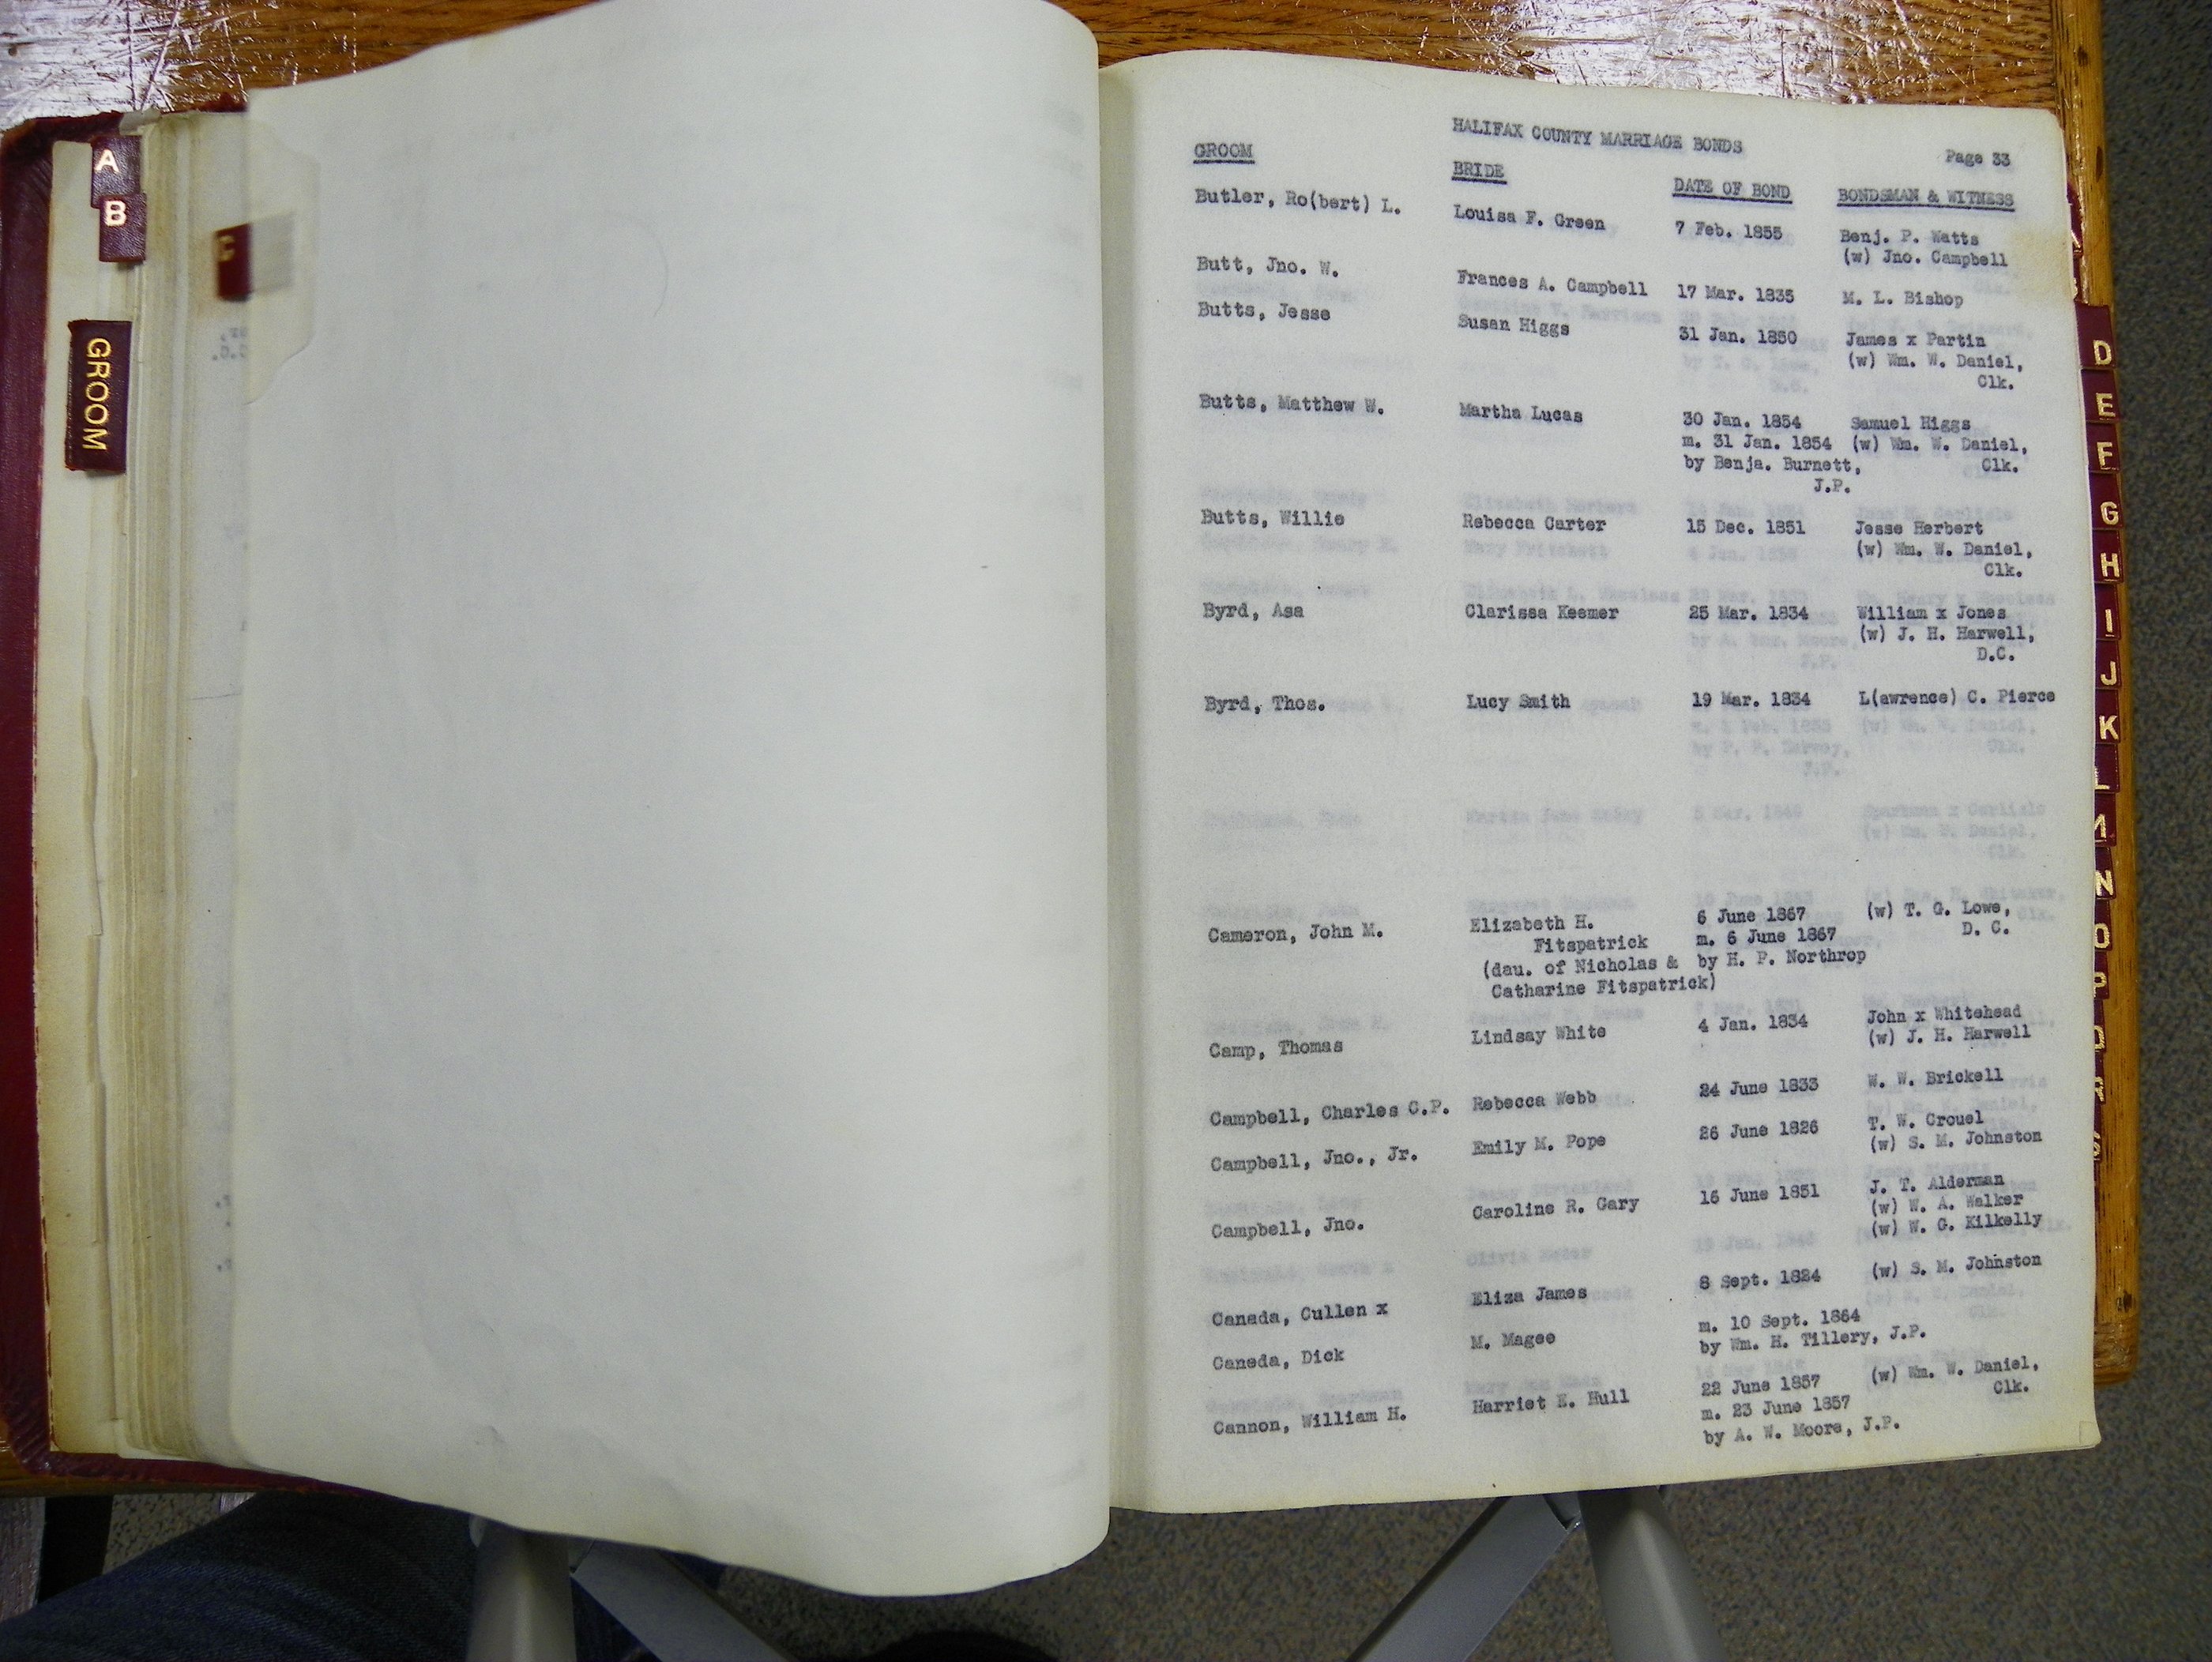 A
B
C
GROOM
HALIFAX COUNTY MARRIAGE BONDS
Page 33
GROOM BRIDE DATE OF BOND BONDSMAN & WITNESS
Butler, Ro(bert) L. Louisa F. Green 7 Feb. 1855 Benj. P. Watts
(w) Jno. Campbell
Butt, Jno. W. Frances A. Campbell 17 Mar. 1835 M. L. Bishop
Butts, Jesse Susan Higgs 31 Jan. 1850 James x Partin
(w) Wm. W. Daniel,
Clk.
Butts, Matthew W. Martha Lucas 30 Jan. 1854 Samuel Higgs
m. 31 Jan. 1854 (w) Wm. W. Daniel,
by Benja. Burnett, Clk.
J.P.
Butts, Willie Rebecca Carter 15 Dec. 1851 Jesse Herbert
(w) Wm. W. Daniel,
Clk.
Byrd, Asa Clarissa Keemer 25 Mar. 1834 William x Jones
(w) J. H. Harwell,
D.C.
Byrd, Thos. Lucy Smith 19 Mar. 1834 L(awrence) C. Pierce
Cameron, John M. Elizabeth H. 6 June 1867 (w) T. G. Lowe,
Fitspatrick m. 6 June 1867 D. C.
(dau. of Nicholas & by H. P. Northrop
Catharine Fitspatrick)
Camp, Thomas Lindsay White 4 Jan. 1834 John x Whitehead
(w) J. H. Harwell
Campbell, Charles C.P. Rebecca Webb 24 June 1833 W. W. Brickell
Campbell, Jno., Jr. Emily M. Pope 26 June 1826 T. W. Crouel
(w) S. M. Johnston
Campbell, Jno. Caroline R. Gary 16 June 1851 J. T. Alderman
(w) W. A. Walker
(w) W. G. Kilkelly
Canada, Cullen x Eliza James 8 Sept. 1824 (w) S. M. Johnston
Caneda, Dick M. Magee m. 10 Sept. 1864
by Wm. H. Tillery, J.P.
Cannon, William H. Harriet E. Hull 22 June 1857 (w) Wm. W. Daniel,
m. 23 June 1857 Clk.
by A. W. Moore, J.P.
D
E
F
G
H
I
J
K
L
M
N
O
P
Q
R